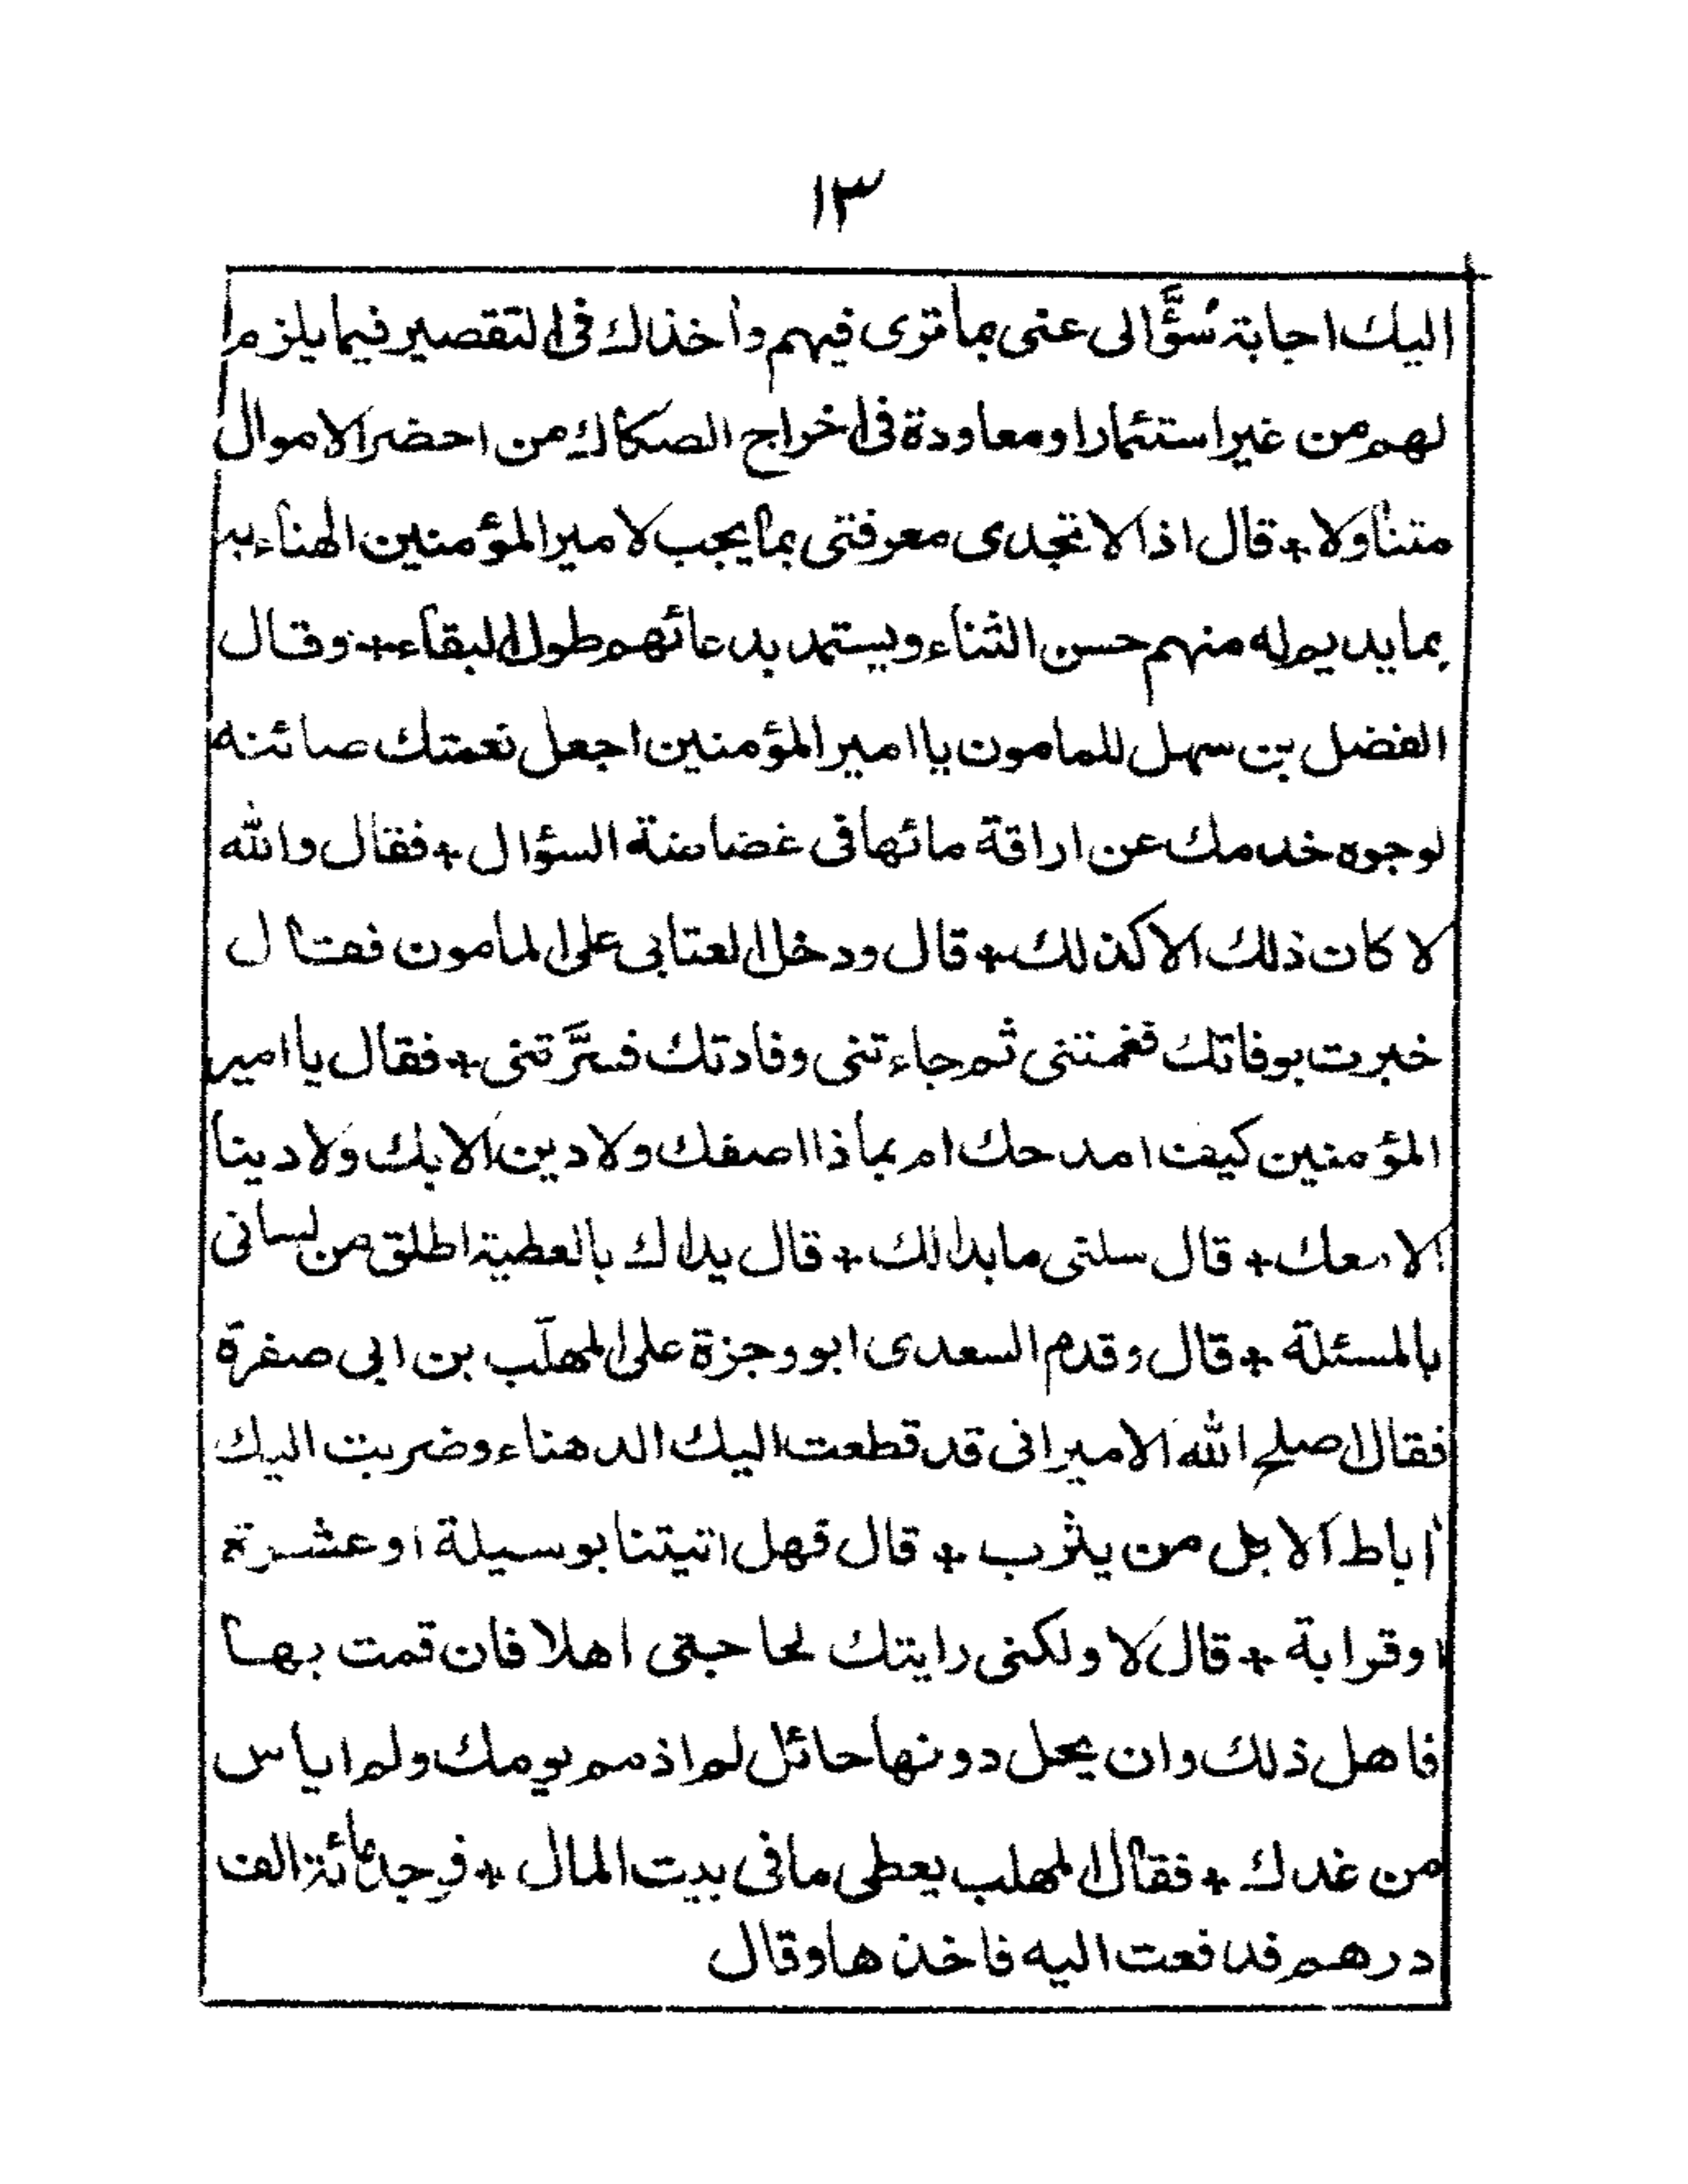 ١٣
اليك اجابة سُؤَّالى عنى بما ترى فيهم وأخذك فى التقصير فيما يلزم
لهم من غير استثمارا ومعاودة فى اخراج الصكاك من احضر الاموال
متنأولا + قال اذا لا تجدى معرفتى بما يجب لامير المؤمنين الهناء به
بما يديم له منهم حسن الثناء ويستمد بدعائهم طول البقاء + وقال
الفضل بن سهل للمامون يا امير المؤمنين اجعل نعمتك صائنه
لوجوه خدمك عن اراقة مائها فى غضاضة السؤال + فقال والله
لا كان ذلك الا كذلك + قال ودخل العتابى على المأمون فقال
خبرت بوفاتك فغمتنى ثم جاءتنى وفادتك فسرَّتنى + فقال يا امير
المؤمنين كيف امدحك ام بماذا اصفك ولا دين الا بك ولا دينا
الا معك + قال سلنى ما بدا لك + قال يداك بالعطية اطلق من لسانى
بالمسئلة + قال وقدم السعدى ابو وجزة على المهلّب بن ابى صفرة
فقال اصلح الله الامير انى قد قطعت اليك الدهناء وضربت اليك
أباط الابل من يثرب + قال فهل اتيتنا بوسيلة او عشرة
او قرابة + قال لا ولكنى رايتك لحاجتى اهلا فان قمت بها
فاهل ذلك وان يحل دونها حائل لم اذمم يومك ولم اياس
من غدك + فقال المهلب يعطى ما فى بيت المال + فوجد مائة الف
درهم فدفعت اليه فاخذها وقال